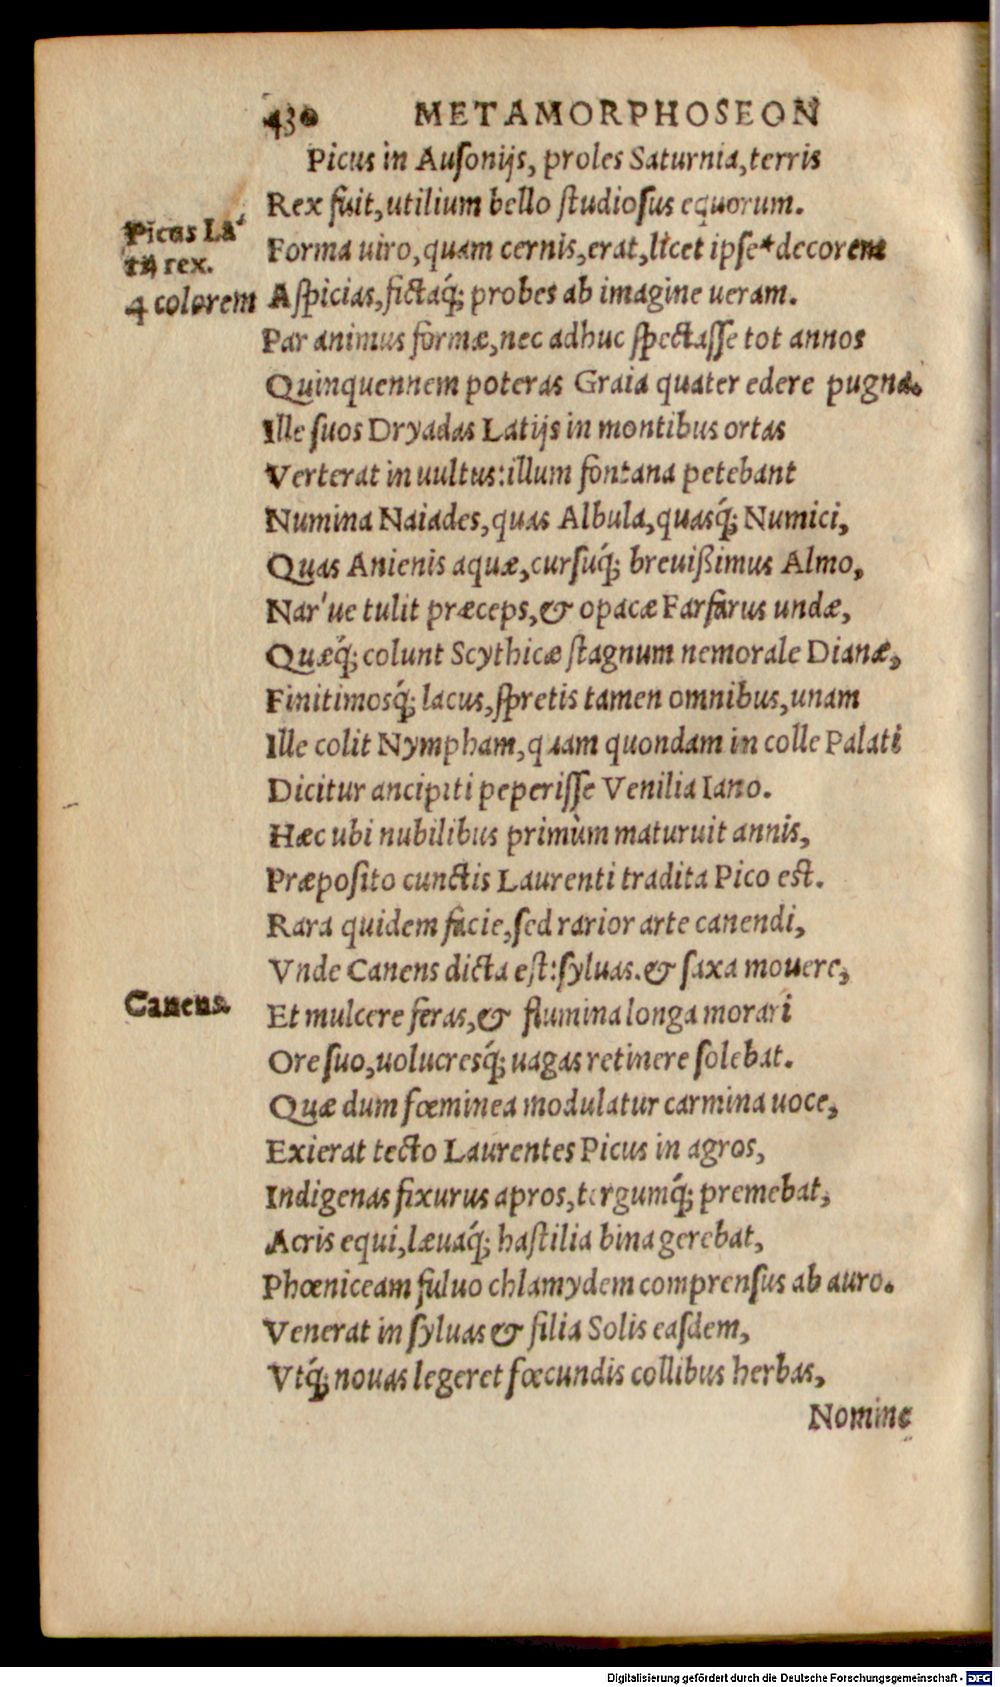 430 METAMORPHOSEON
Picus in Auſonijs, proles Saturnia, terris
Rex fuit, utilium bello ſtudioſus equorum.
Picus La⸗
tij rex.
Forma uiro, quam cernis, erat, licet ipſe*decorem
4 colorem
Aſpicias, fictaq́; probes ab imagine ueram.
Par animus formæ, nec adhuc ſpectaſſe tot annos
Quinquennem poteras Graia quater edere pugna.
Ille ſuos Dryadas Latijs in montibus ortas
Verterat in uultus: illum fontana petebant
Numina Naiades, quas Albula, quasq́; Numici,
Quas Anienis aquæ, curſuq́; breuißimus Almo,
Nar'ue tulit præceps, & opacæ Farfarus undæ,
Quæq́; colunt Scythicæ ſtagnum nemorale Dianæ,
Finitimosq́; lacus, ſpretis tamen omnibus, unam
Ille colit Nympham, quam quondam in colle Palati
Dicitur ancipiti peperiſſe Venilia Iano.
Hæc ubi nubilibus primùm maturuit annis,
Præpoſito cunctis Laurenti tradita Pico eſt.
Rara quidem facie, ſed rarior arte canendi,
Vnde Canens dicta eſt: ſyluas. & ſaxa mouere,
Canens.
Et mulcere feras, & flumina longa morari
Ore ſuo, uolucresq́; uagas retinere ſolebat.
Quæ dum fœminea modulatur carmina uoce,
Exierat tecto Laurentes Picus in agros,
Indigenas fixurus apros, tergumq́; premebat,
Acris equi, læuaq́; haſtilia bina gerebat,
Phœniceam fuluo chlamydem comprenſus ab auro.
Venerat in ſyluas & filia Solis eaſdem,
Vtq́; nouas legeret fœcundis collibus herbas,
Nomine
Digitalisierung gefördert durch die Deutsche Forschungsgemeinschaft - DFG